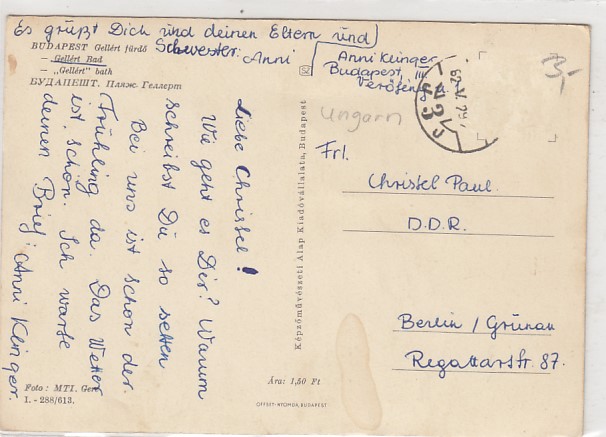 Es grüßt Dich und deinen Eltern und
Schwester: Anni
BUDAPEST Gellért fürdő
— Gellért Bad
— „Gellért" bath
БУДАПЕШТ. Пляж Геллерт
Liebe Chrissel!
Wie geht es Dir? Warum
schreibst Du so selten
Bei uns ist schon der.
Frühling da. Das Wetter
ist schön. Ich warte
deinen Brief: Anni Klinger.
Foto: MTI. Gere
I. - 288/613.
Képzőművészeti Alap Kiadóvállalata, Budapest
Ára: 1,50 Ft
OFFSET-NYOMDA, BUDAPEST
Anni Klinger
Budapest, III.
62
3,-
Ungarn
Frl.
Christel Paul
D.D.R.
Berlin / Grünau
Regattastr 87.